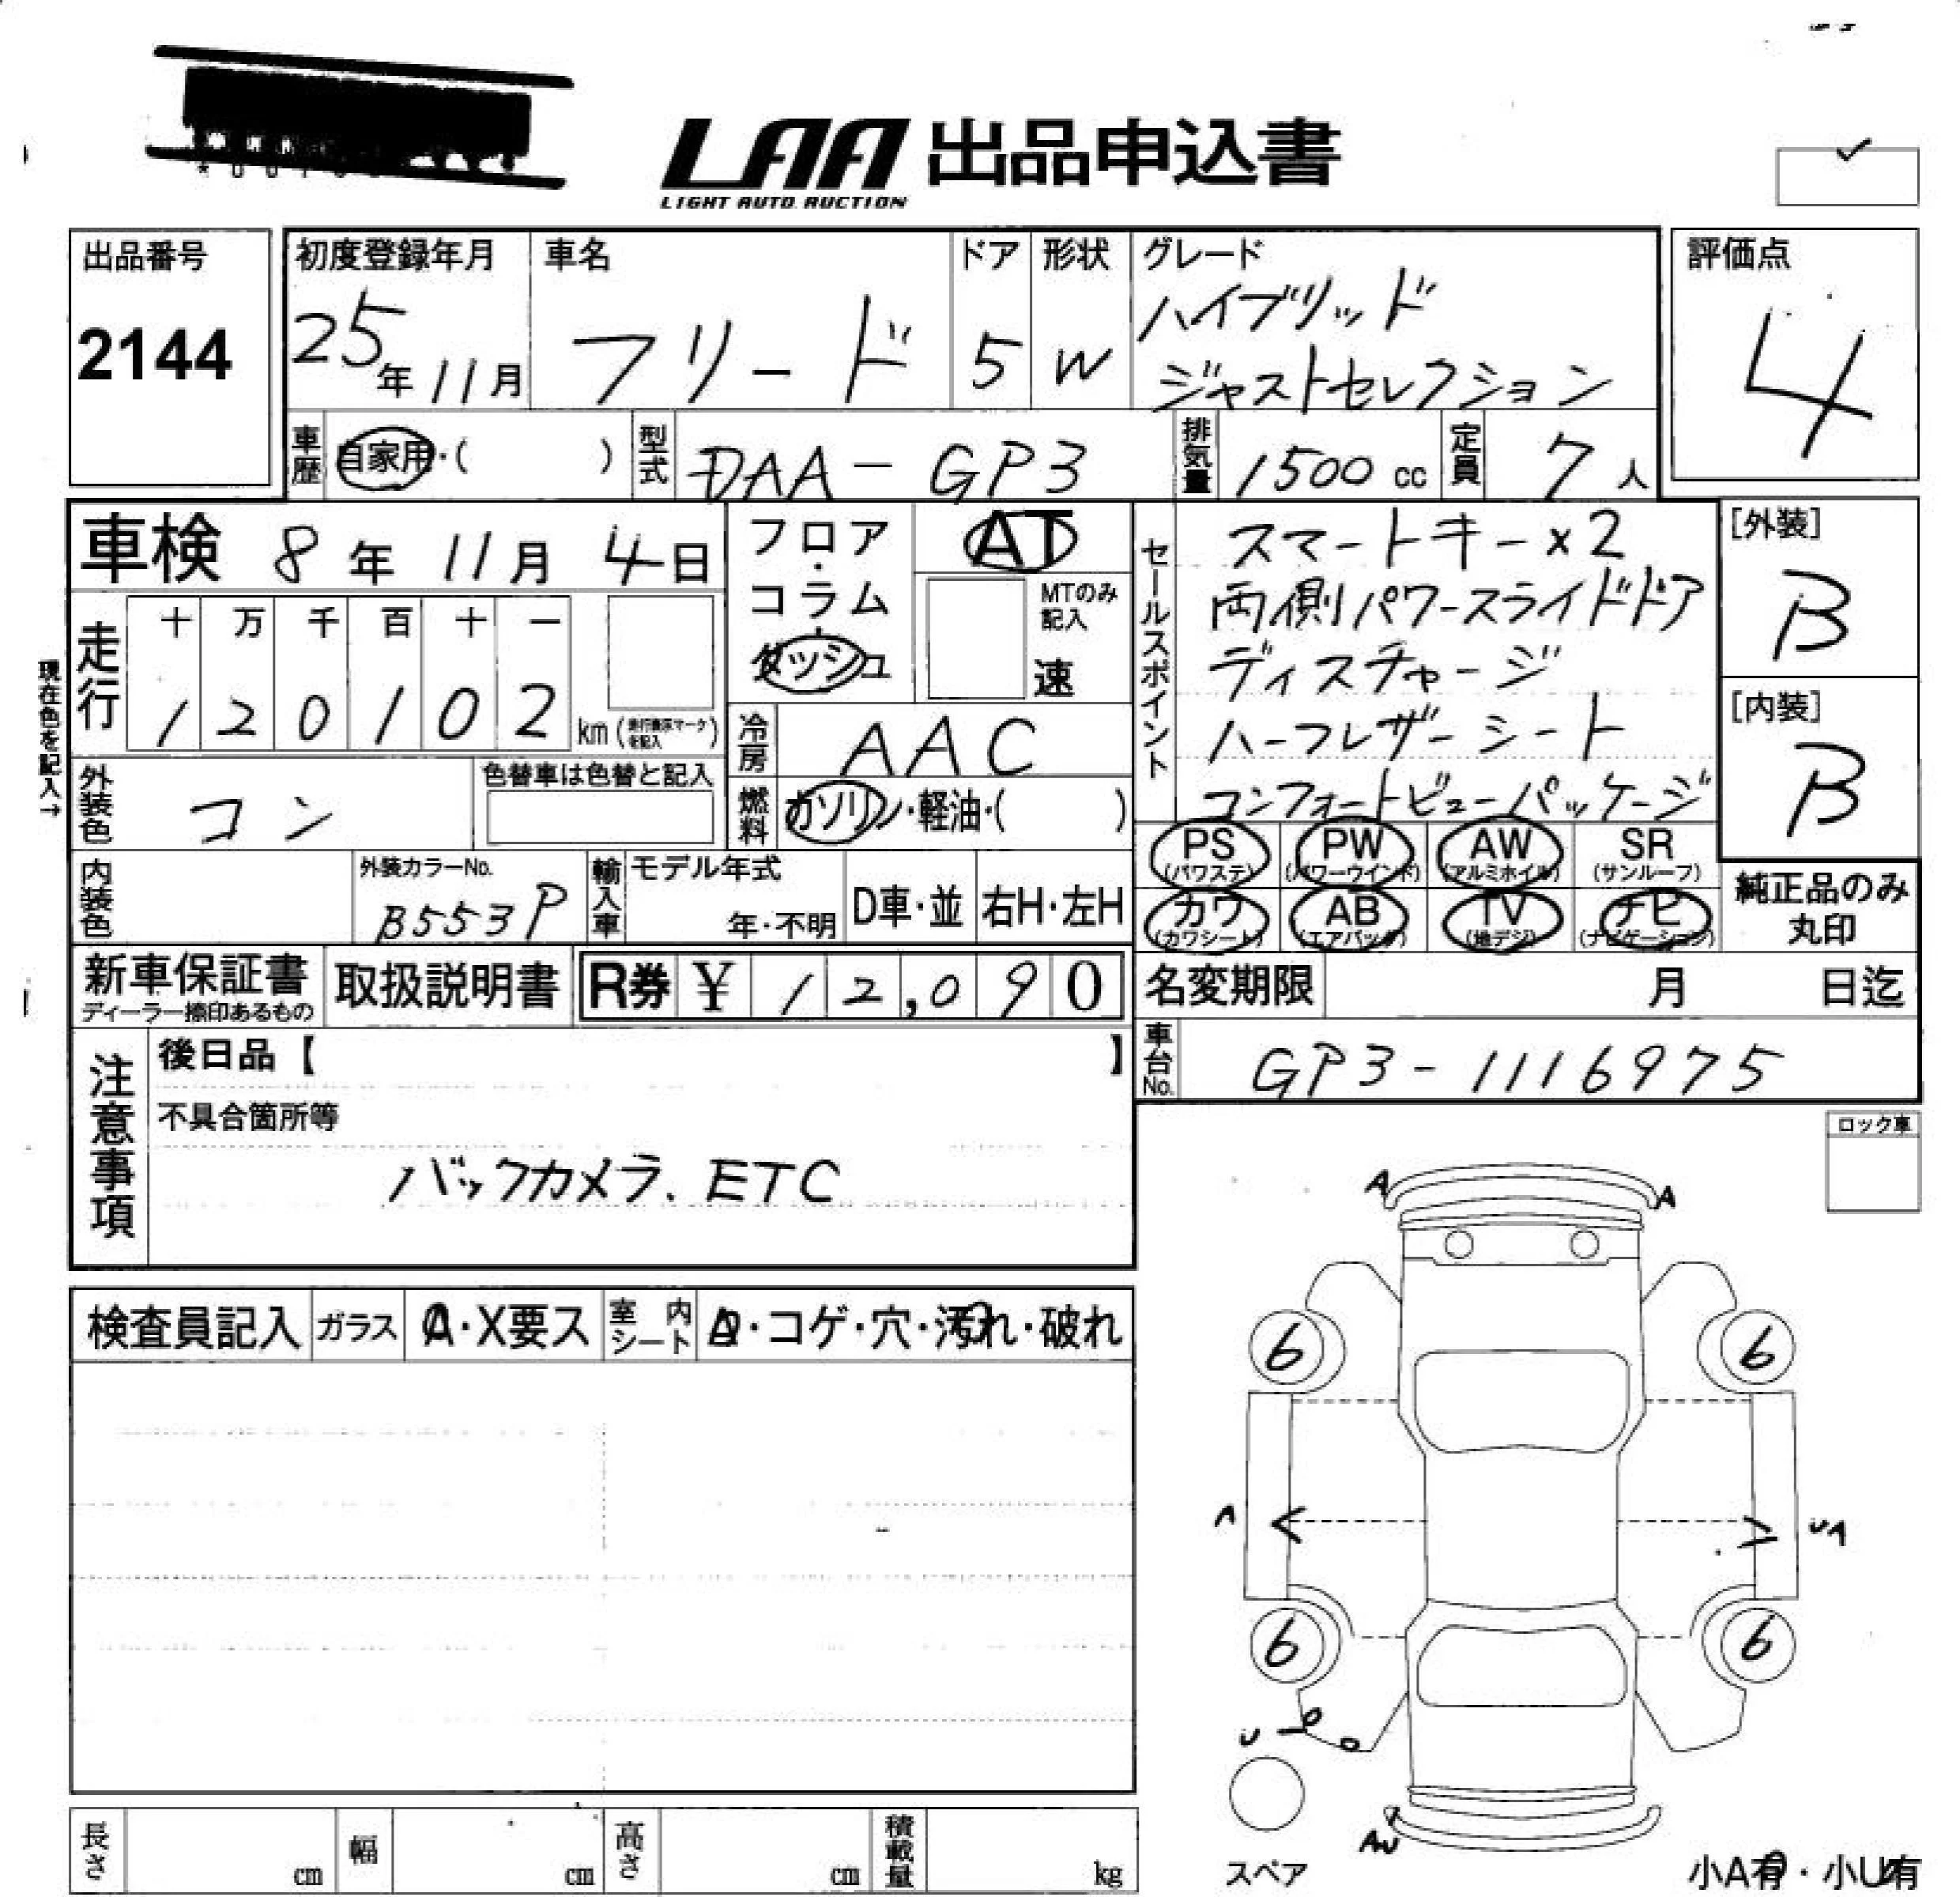 LAA 出品申込書
LIGHT AUTO AUCTION
出品番号
2144
初度登録年月
25年11月
車名
フリード
ドア
5
形状
W
グレード
ハイブリッド
ジャストセレクション
評価点
4
車歴 自家用・( )
型式 DAA-GP3
排気量 1500cc
定員 7人
車検 8年11月4日
走行
十 万 千 百 十 一
1 2 0 1 0 2 km
フロア・コラム・ダッシュ
AT
MTのみ
記入
速
冷房 AAC
燃料 ガソリン・軽油・( )
セールスポイント
スマートキー×2
両側パワースライドドア
ディスチャージ
ハーフレザーシート
コンフォートビューパッケージ
[外装]
B
[内装]
B
現在色を記入→
外装色 コン
色替車は色替と記入
内装色
外装カラーNo.
B553P
輸入車
モデル年式
年・不明
D車・並
右H・左H
PS
(パワステ)
PW
(パワーウインド)
AW
(アルミホイル)
SR
(サンルーフ)
カワ
(カワシート)
AB
(エアバック)
TV
(地デジ)
ナビ
(ナビゲーション)
純正品のみ
丸印
新車保証書
ディーラー捺印あるもの
取扱説明書
R券 ¥ 12,090
名変期限 月 日迄
車台No. GP3-1116975
注意事項
後日品【 】
不具合箇所等
バックカメラ、ETC
ロック車
検査員記入
ガラス
A・X要ス
室内シート
・コゲ・穴・汚れ・破れ
A A
6 6
A UA
6 6
U
AU
スペア
小A有・小U有
長さ cm
幅 cm
高さ cm
積載量 kg